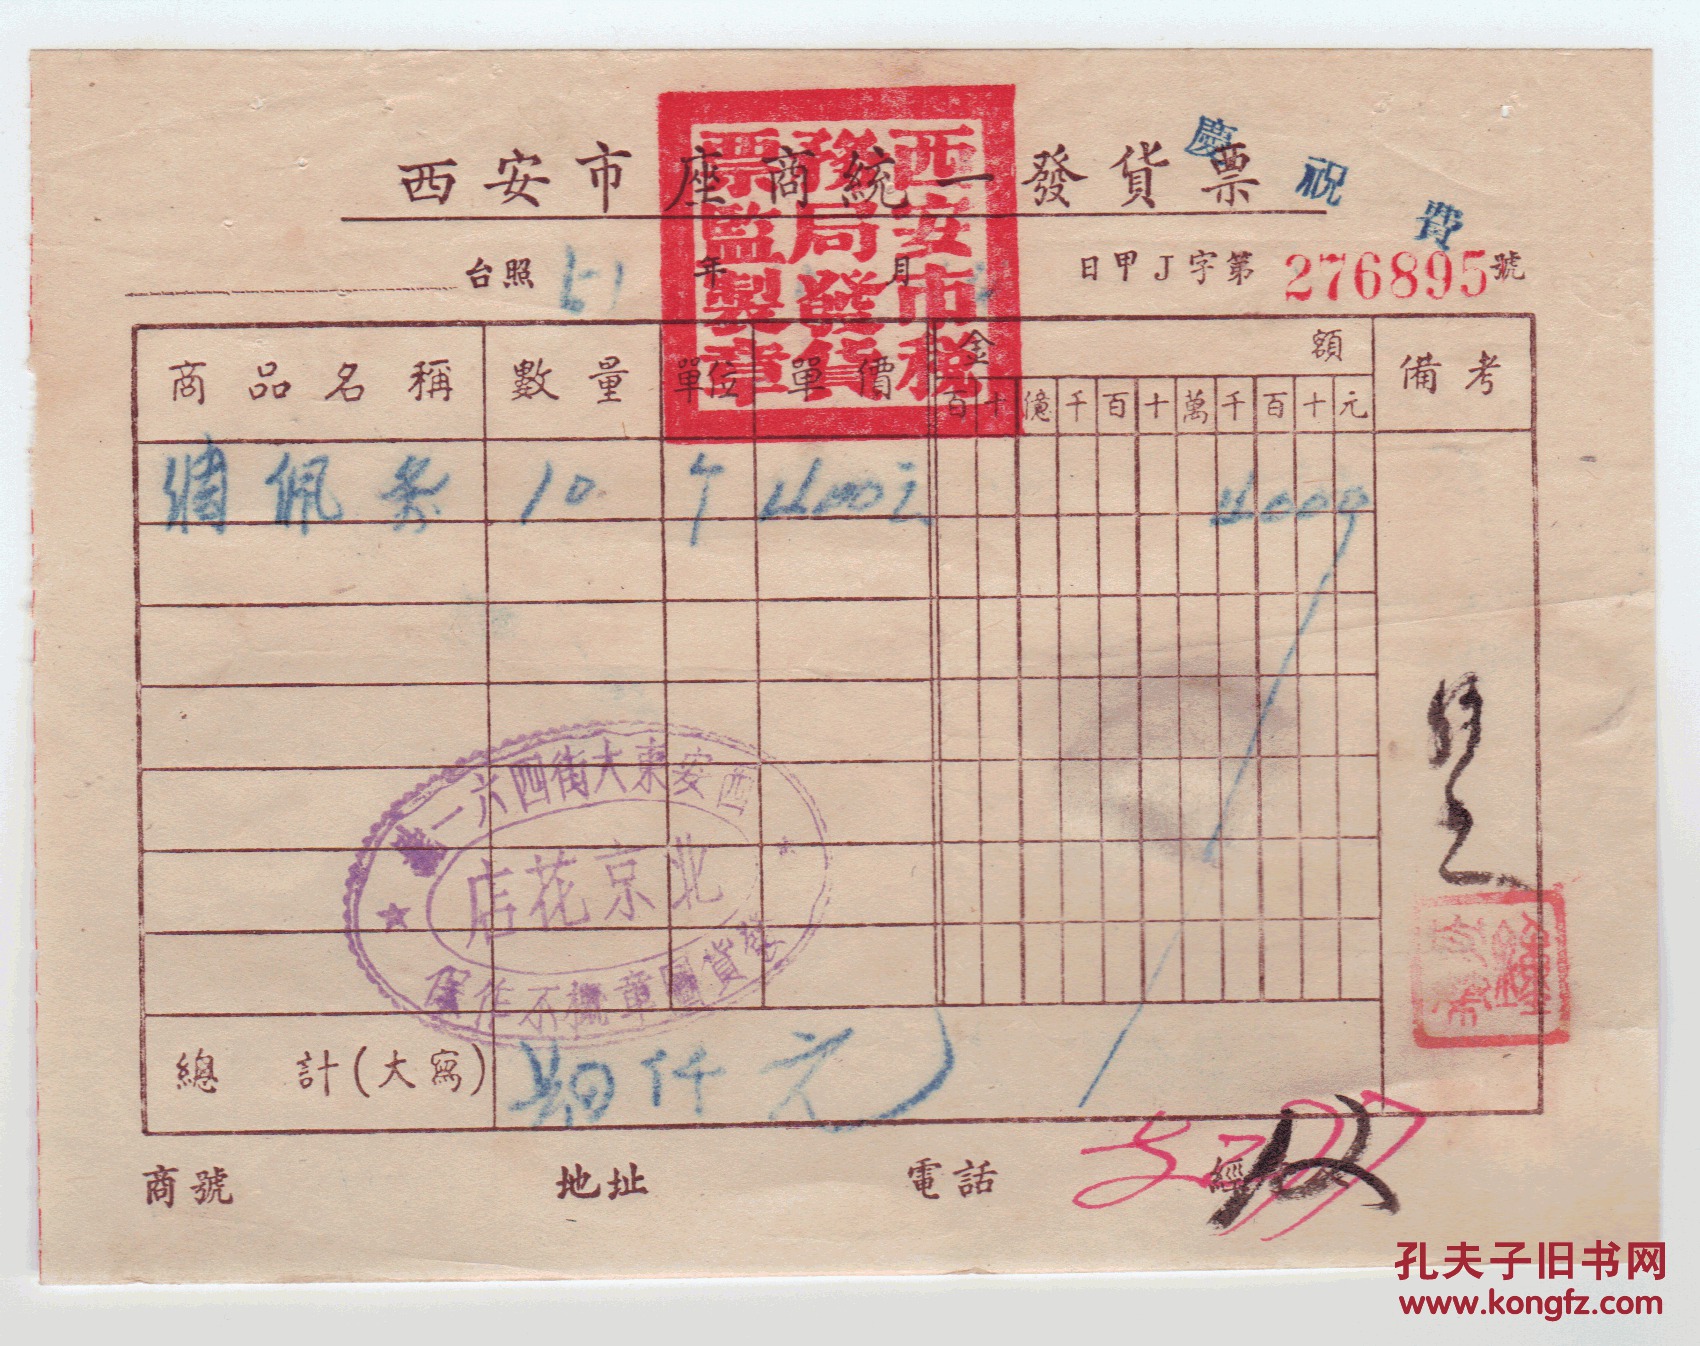 西安市座商統一發貨票
慶祝費
西安市稅務局發貨票監製章
台照 51年 月 日甲J字第276895號
商品名稱 數量 單位 單價 金額 備考
百十億千百十萬千百十元
綢佩条 10 个 400元 4000
西安東大街四六一號
北京花店
發貨圖章概不作保
總計(大寫) 肆仟元
商號 地址 電話 經
孔夫子旧书网
www.kongfz.com